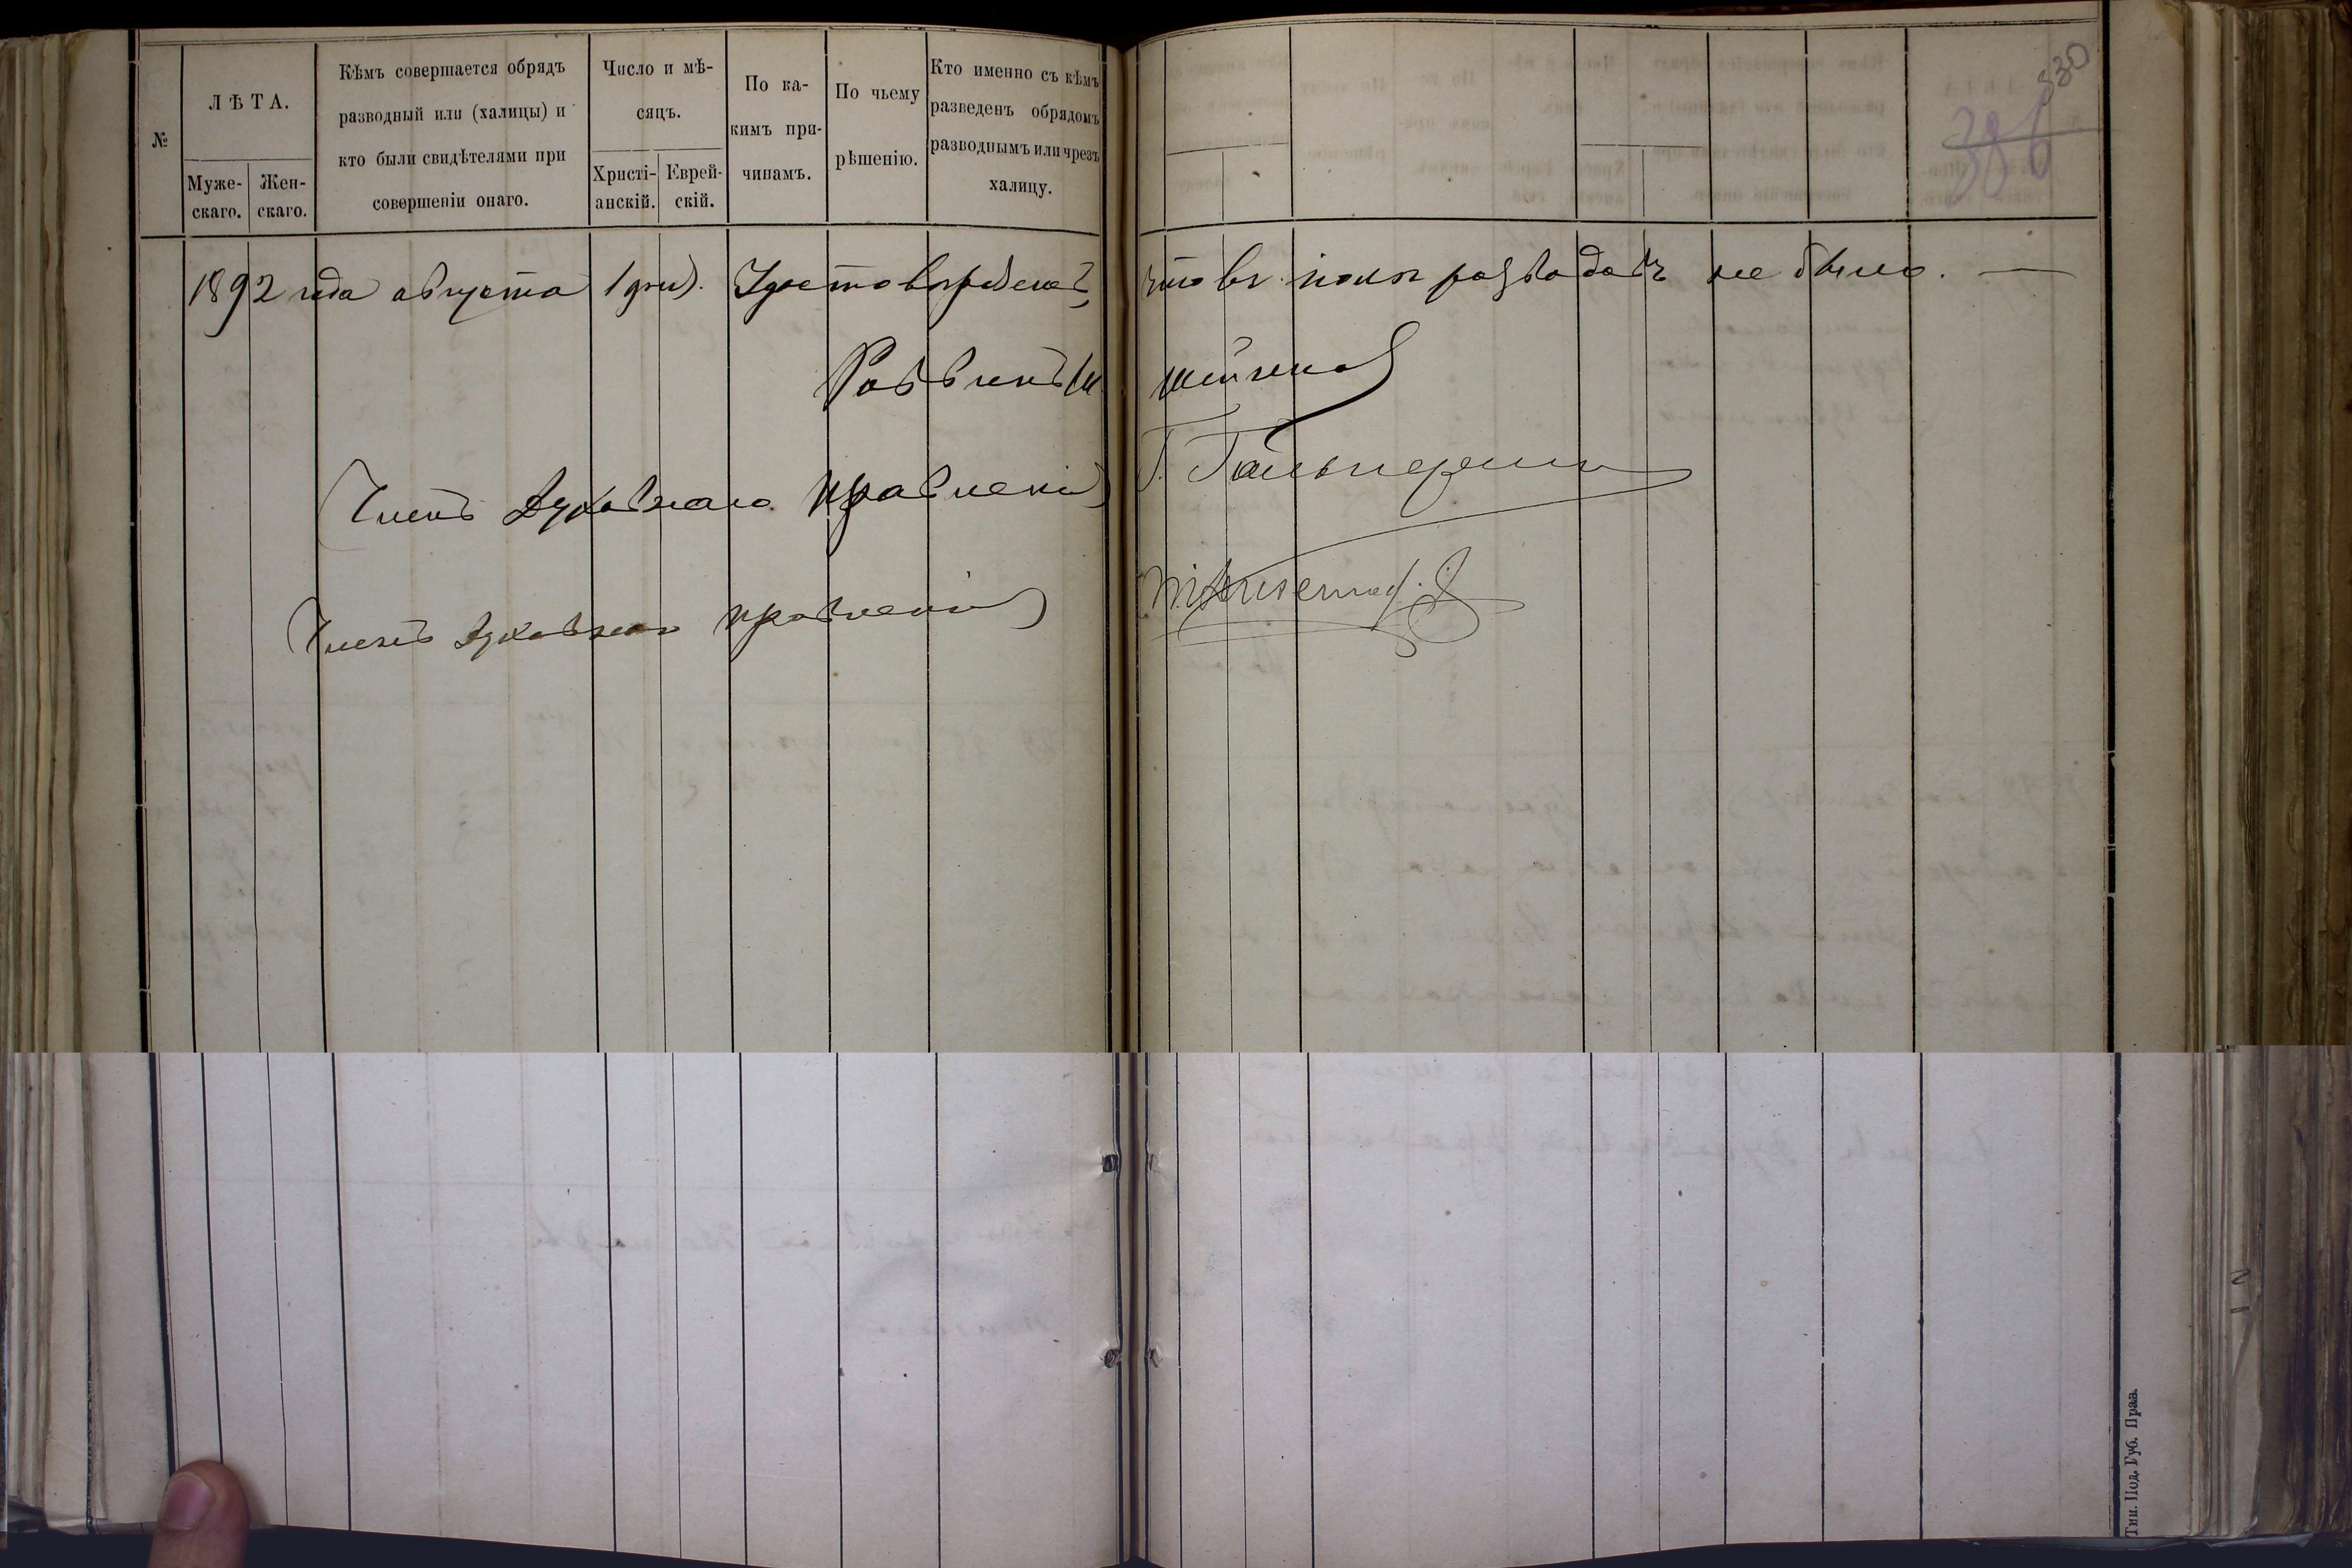 №
ЛѢТА.
Муже-
скаго.
Жен-
скаго.
Кѣмъ совершается обрядъ
разводный или (халицы) и
кто были свидѣтелями при
совершеніи онаго.
Число и мѣ-
сяцъ.
Христі-
анскій.
Еврей-
скій.
По ка-
кимъ при-
чинамъ.
По чьему
рѣшенію.
Кто именно съ кѣмъ
разведенъ обрядомъ
разводнымъ или чрезъ
халицу.
330
386
1892 года августа 1 дня. Удостовѣряемъ, что въ іюлѣ разводовъ не было. —
Раввинъ
Членъ духовнаго правленія Г. Гальперинъ
Членъ духовнаго правленія
Тип. Под. Губ. Прав.